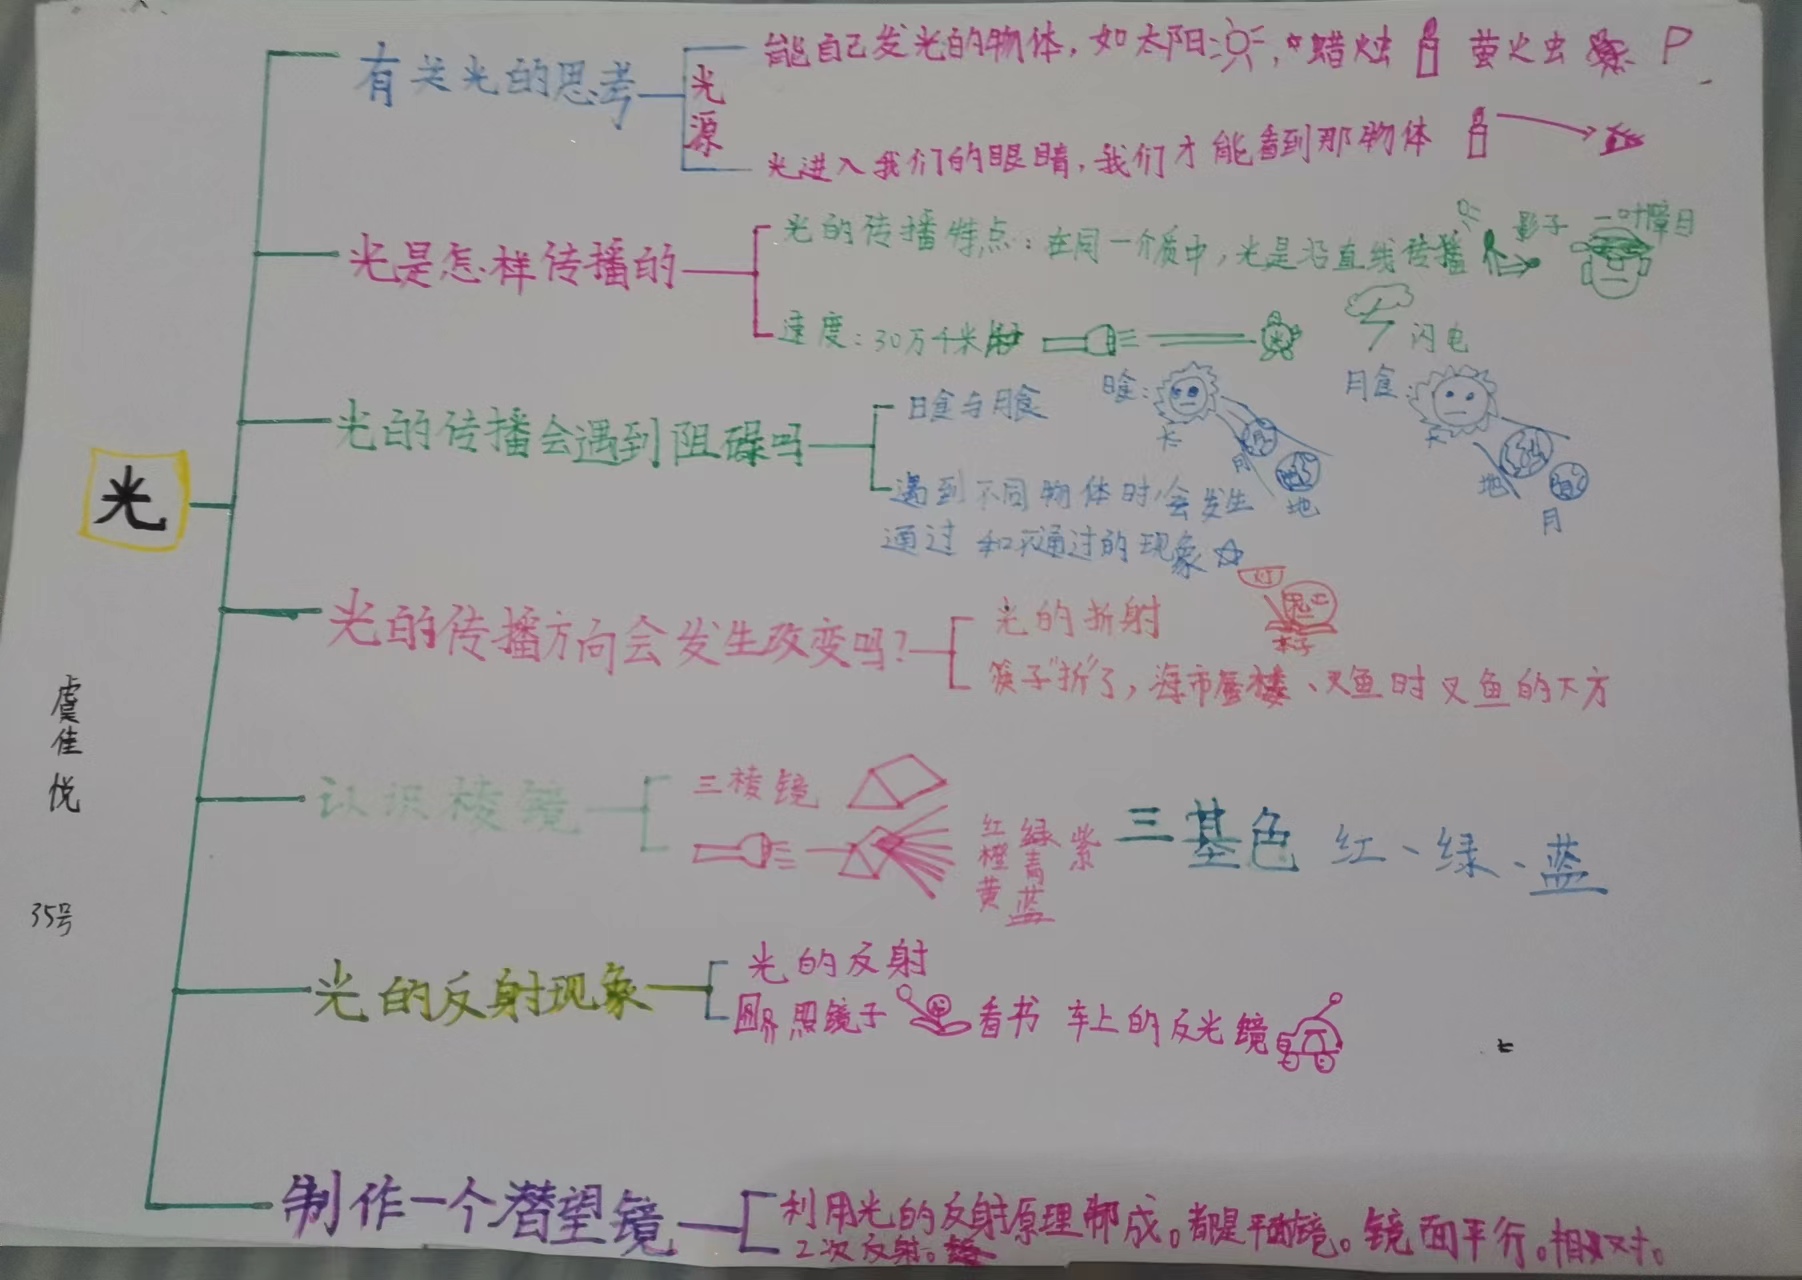 光
虞佳悦
35号
有关光的思考
光源
能自己发光的物体，如太阳，蜡烛 萤火虫
光进入我们的眼睛，我们才能看到那物体
光是怎样传播的
光的传播特点：在同一介质中，光是沿直线传播
影子 一叶障目
速度：30万千米
闪电
光的传播会遇到阻碍吗
日食与月食
日食：
月食：
月
地
地
月
遇到不同物体时会发生
通过和不通过的现象☆
光的传播方向会发生改变吗？
光的折射
灯
筷子“折”了，海市蜃楼、叉鱼时叉鱼的下方
认识棱镜
三棱镜
红橙黄
绿青蓝
紫
三基色 红、绿、蓝
光的反射现象
光的反射
照镜子 看书 车上的反光镜
制作一个潜望镜
利用光的反射原理制成。都是平面镜。镜面平行。相对。
2次反射。